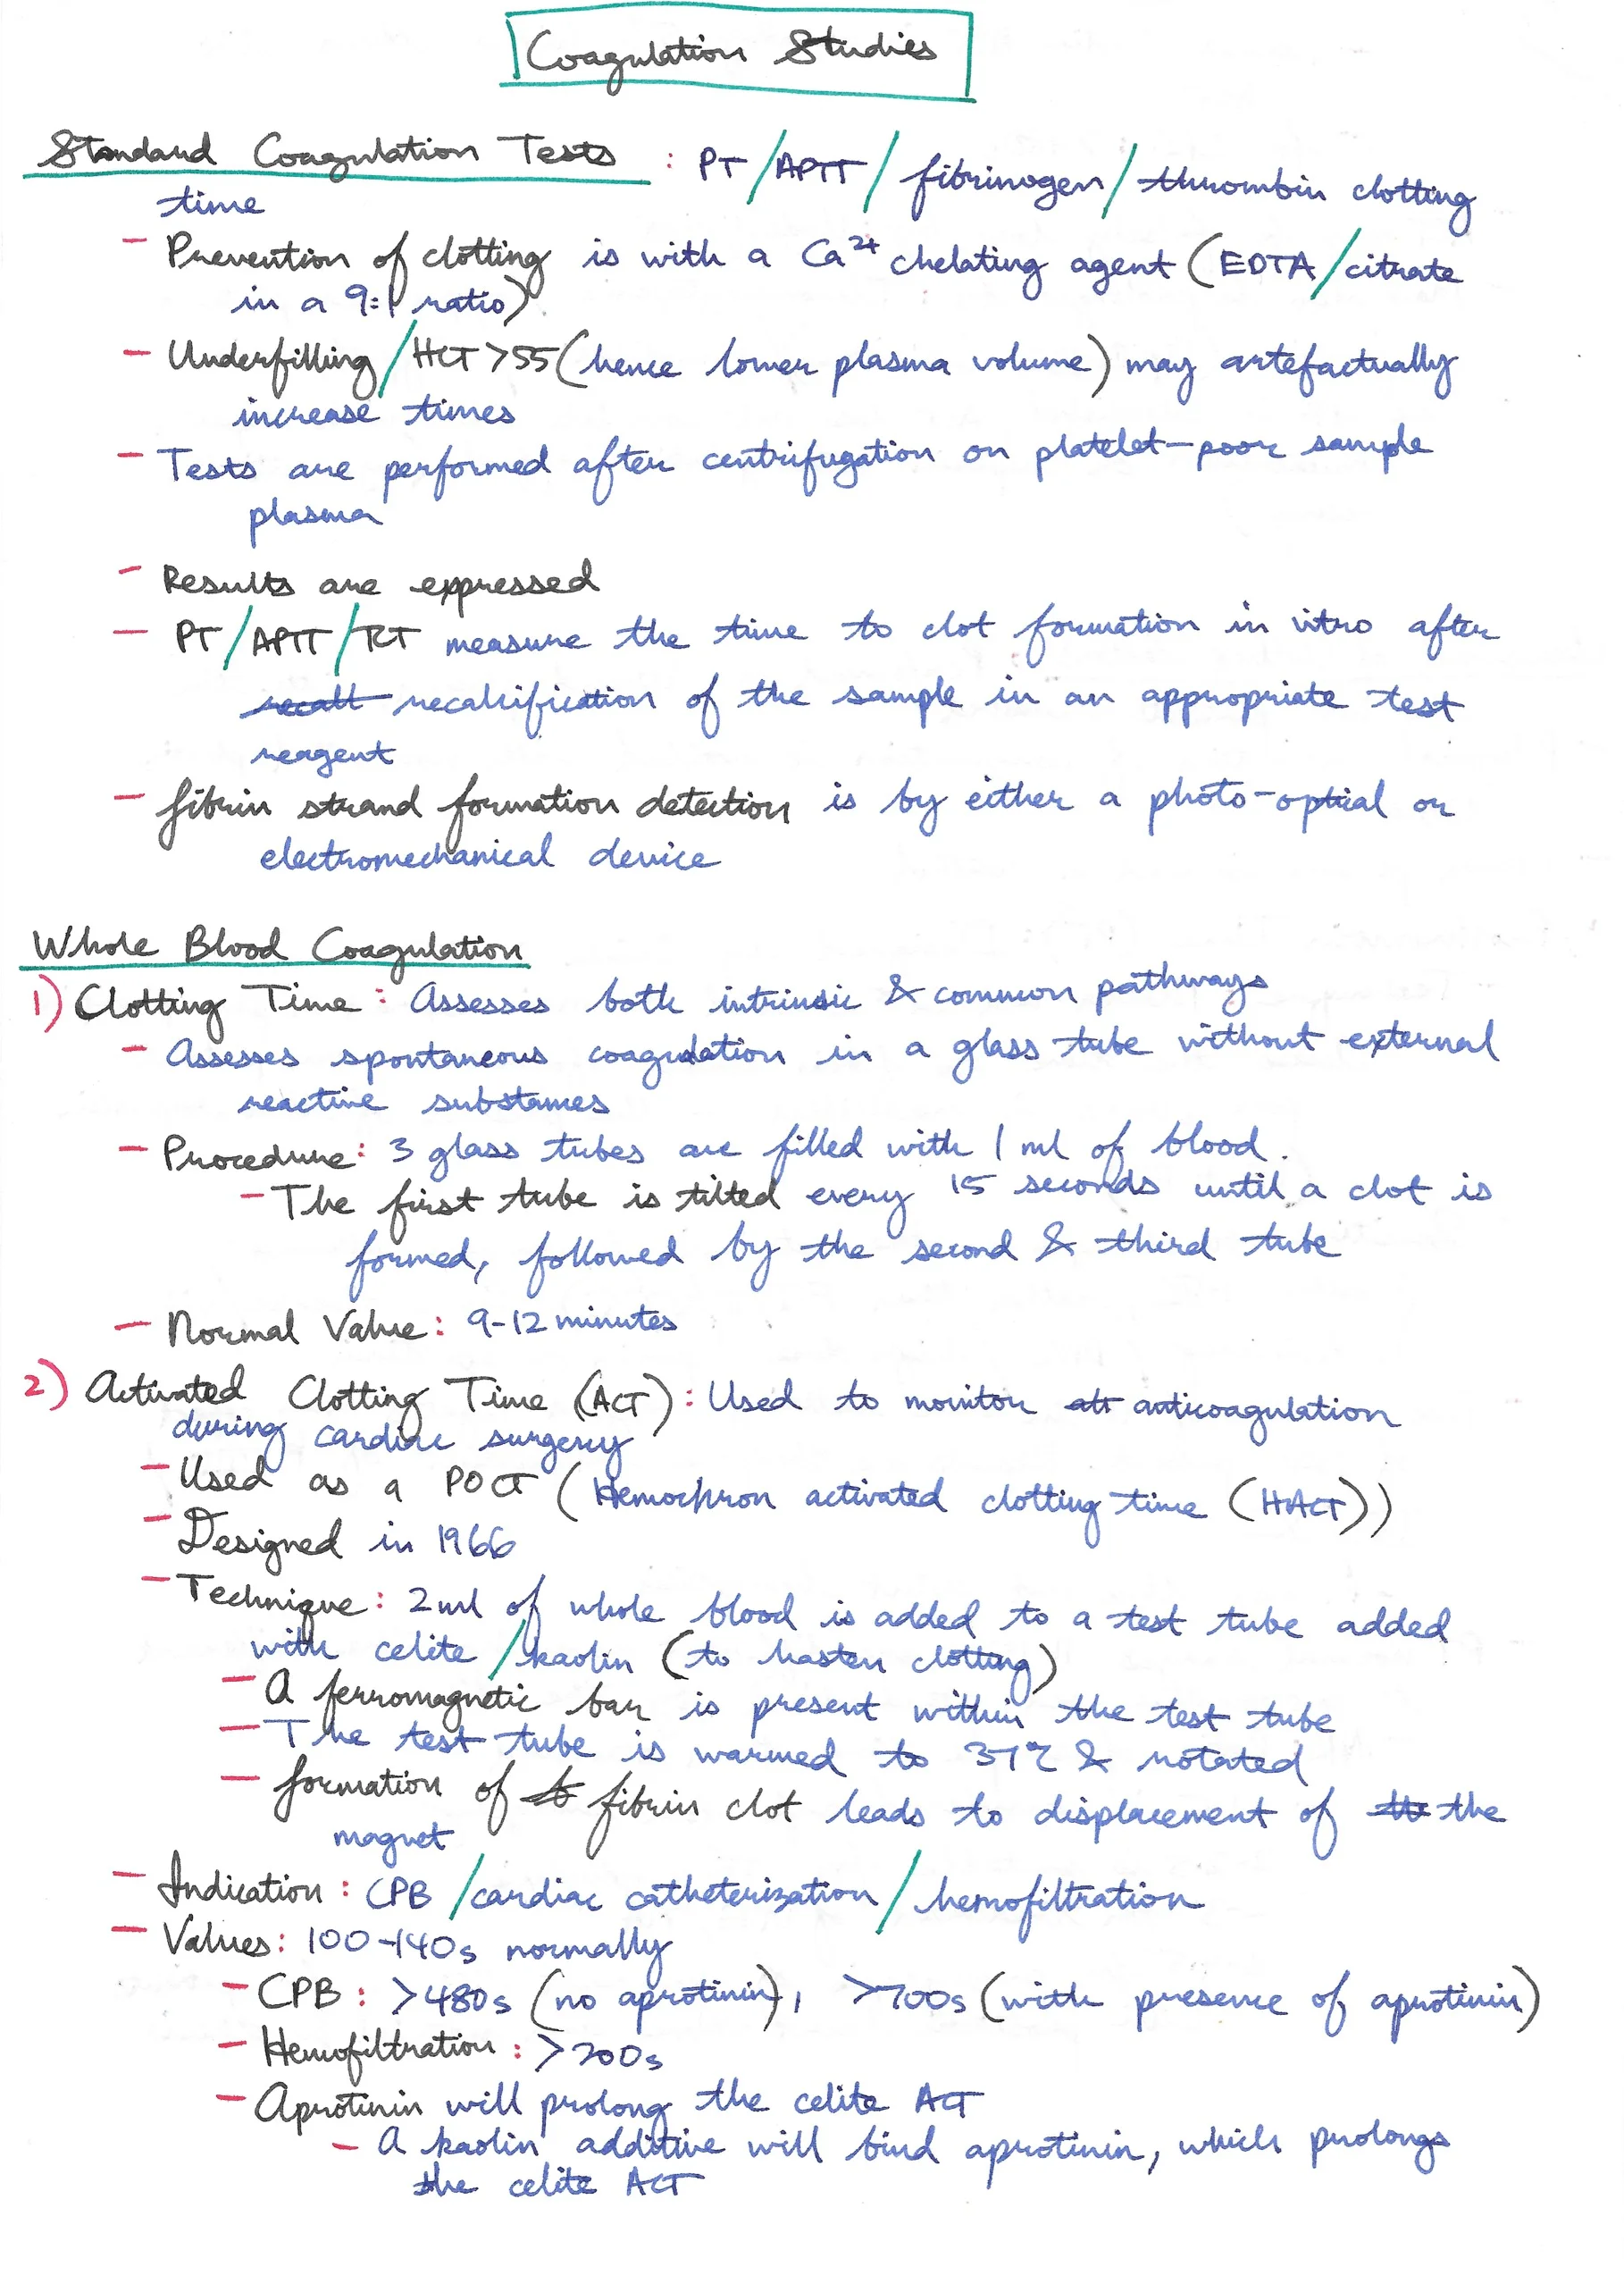 Coagulation Studies
Standard Coagulation Tests : PT/APTT/fibrinogen/thrombin clotting
time
- Prevention of clotting is with a Ca2+ chelating agent (EDTA/citrate
in a 9:1 ratio)
- Underfilling/HCT >55 (hence lower plasma volume) may artefactually
increase times
- Tests are performed after centrifugation on platelet-poor sample
plasma
- Results are expressed
- PT/APTT/TCT measure the time to clot formation in vitro after
recalcification of the sample in an appropriate test
reagent
- fibrin strand formation detection is by either a photo-optical or
electromechanical device
Whole Blood Coagulation
1) Clotting Time: Assesses both intrinsic & common pathways
- Assesses spontaneous coagulation in a glass tube without external
reactive substances
- Procedure: 3 glass tubes are filled with 1 ml of blood.
- The first tube is tilted every 15 seconds until a clot is
formed, followed by the second & third tube
- Normal Value: 9-12 minutes
2) Activated Clotting Time (ACT): Used to monitor anticoagulation
during cardiac surgery
- Used as a POCT (Hemochron activated clotting time (HACT))
- Designed in 1966
- Technique: 2ml of whole blood is added to a test tube added
with celite/kaolin (to hasten clotting)
- A ferromagnetic bar is present within the test tube
- The test tube is warmed to 37°C & rotated
- formation of fibrin clot leads to displacement of the
magnet
- Indication: CPB/cardiac catheterization/hemofiltration
- Values: 100-140s normally
- CPB: >480s (no aprotinin), >700s (with presence of aprotinin)
- Hemofiltration: >200s
- Aprotinin will prolong the celite ACT
- A kaolin additive will bind aprotinin, which prolongs
the celite ACT